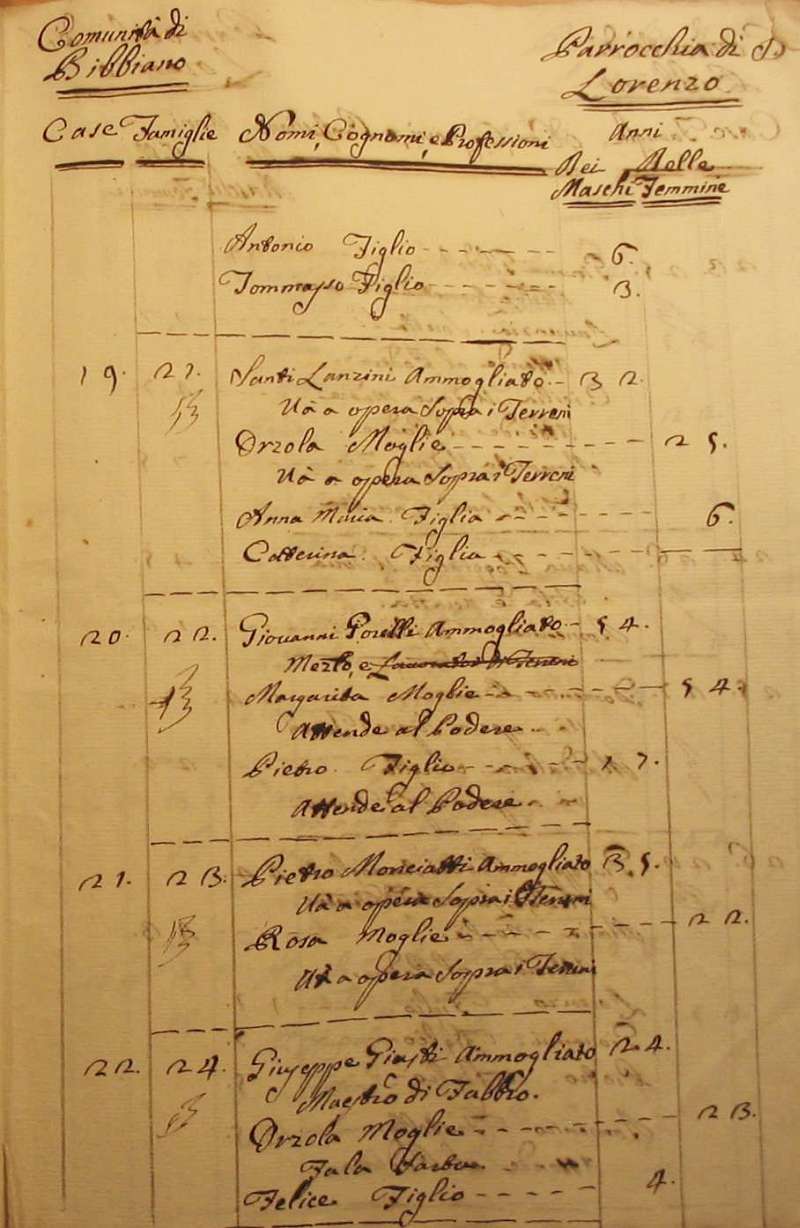 Comunità di
Bibbiano
Parrocchia di S.
Lorenzo
Case Famiglie Nomi, Cognomi, e Professioni Anni
Dei Maschi Delle Femmine
Antonio Figlio 6.
Tommasso Figlio 3.
19. 21. Santi Lanzini Ammogliato 32.
Và a opera Sopra i Terreni
Orzola Moglie 25.
Và a opera Sopra i Terreni
Anna Maria Figlia 6.
Catterina Figlia
20. 22. Giovanni Ammogliato 54.
e Lavorator di Terreni
Margarita Moglie 54.
Attende al Podere
Pietro Figlio 17.
Attende al Podere
21. 23. Pietro Monciatti Ammogliato 35.
Và a opera Sopra i Terreni
Rosa Moglie 22.
Và a opera Sopra i Terreni
22. 24. Giuseppe Giusti Ammogliato 24.
Maestro di Fabbro.
Orzola Moglie 23.
Fa la
Felice Figlio 4.